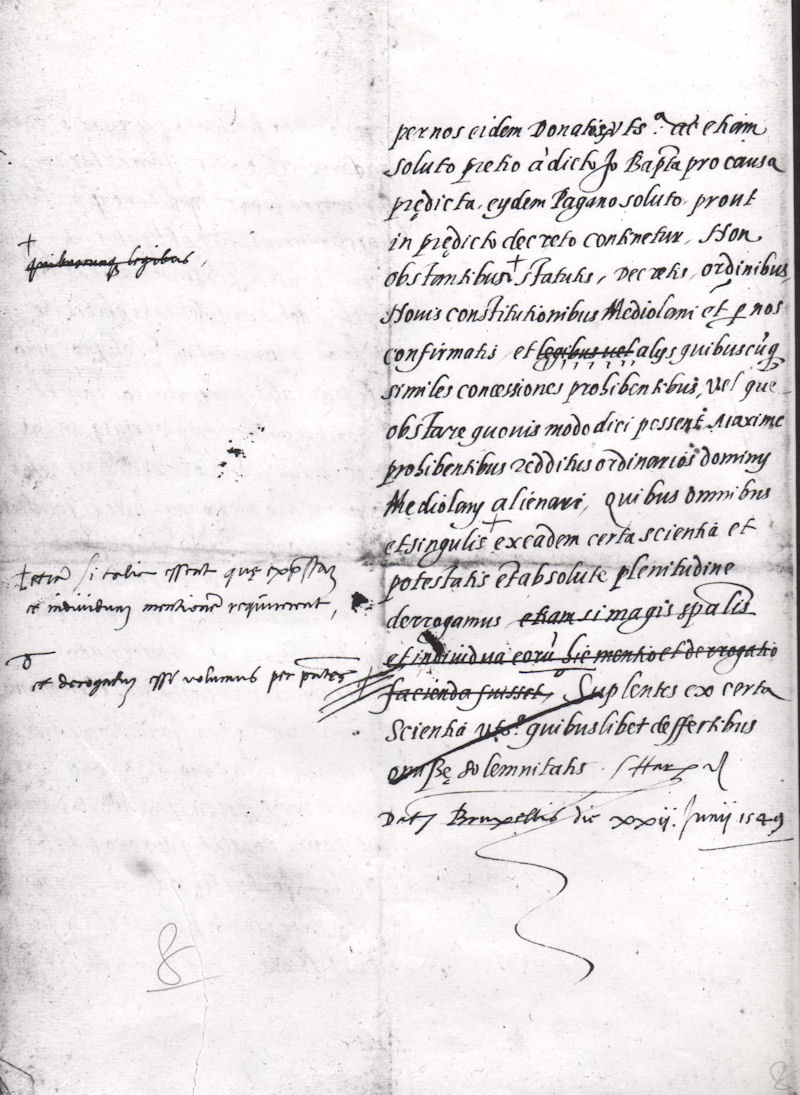 per nos eidem Donatis, ut s.a ac etiam
soluto p̄retio à dicto Jo Bapta pro causa
prędicta, eydem Pagano soluto, prout
in prędicto decreto continetur, Non
obstantibus + statutis, Decretis, ordinibus,
Novis constitutionibus Mediolani et p nos
confirmatis, et legibus vel alys quibuscūq
similes concessiones prohibentibus, Vel que
obstare quovis modo dici possent, Maxime
prohibentibus redditus ordinarios dominy
Mediolany alienari, Quibus omnibus
et singulis + ex eadem certa scientia et
potestatis et absolute plenitudine
derrogamus etiam si magis spalis
et individua eorū sie mentio et derrogatio
facienda fuisset, Suplentes ex certa
Scientia ut s. quibuslibet deffectibus
omissę solemnitatis.
Dat Bruxellis die xxij. Junij 1549
+
quibuscunq legibus,
+ etiā si talia essent quę expssam
et individuam mentionē requirerent,
et derogatum esse volumus per pntes
8
8